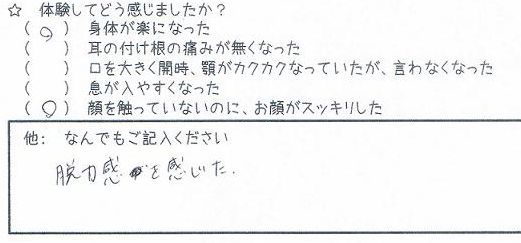 ☆ 体験してどう感じましたか?
(○) 身体が楽になった
( ) 耳の付け根の痛みが無くなった
( ) 口を大きく開時、顎がカクカクなっていたが、言わなくなった
( ) 息が入やすくなった
(○) 顔を触っていないのに、お顔がスッキリした
他: なんでもご記入ください
脱力感を感じた.